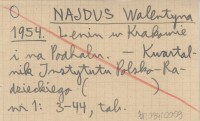 NAJDUS Walentyna
1954. Lenin w Krakowie
i na Podhalu. – Kwartal-
nik Instytutu Polsko-Ra-
dzieckiego (          )
nr 1: 3-44, tab.